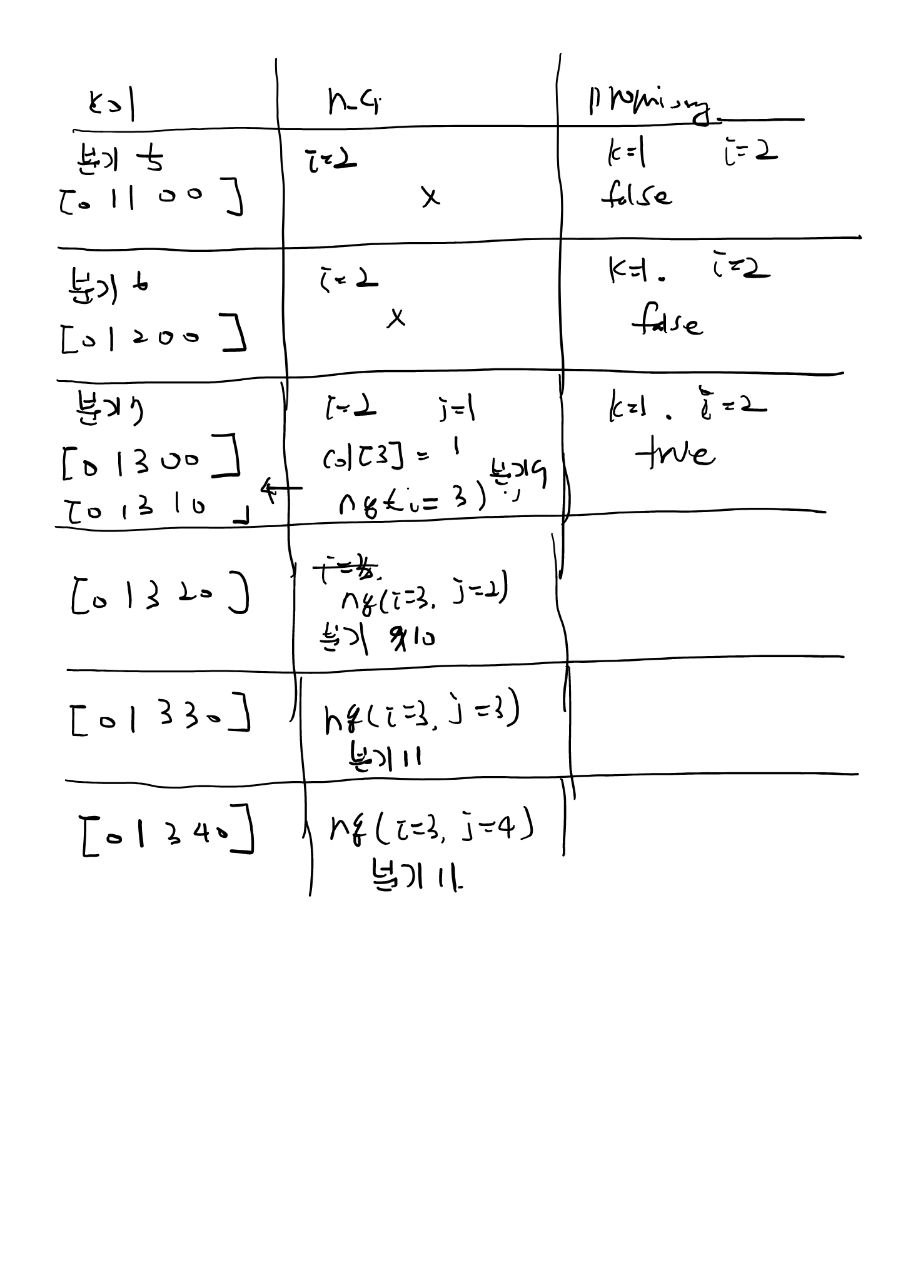 col n_q promising
분기 5 i=2 k=1 i=2
[0 1 1 0 0] x false
분기 6 i=2 k=1. i=2
[0 1 2 0 0] x false
분기 7 i=2 j=1 k=1. i=2
[0 1 3 0 0] col[3] = 1 true
[0 1 3 1 0] ← nq(i= 3) 분기9
[0 1 3 2 0] nq(i=3, j=2)
분기 10
[0 1 3 3 0] nq(i=3, j=3)
분기 11
[0 1 3 4 0] nq(i=3, j=4)
분기 11.